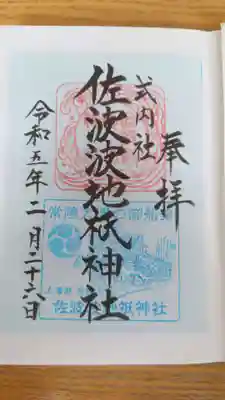 奉拝
式内社
佐波波地祇神社
令和五年二月二十六日
佐波波地祇神社